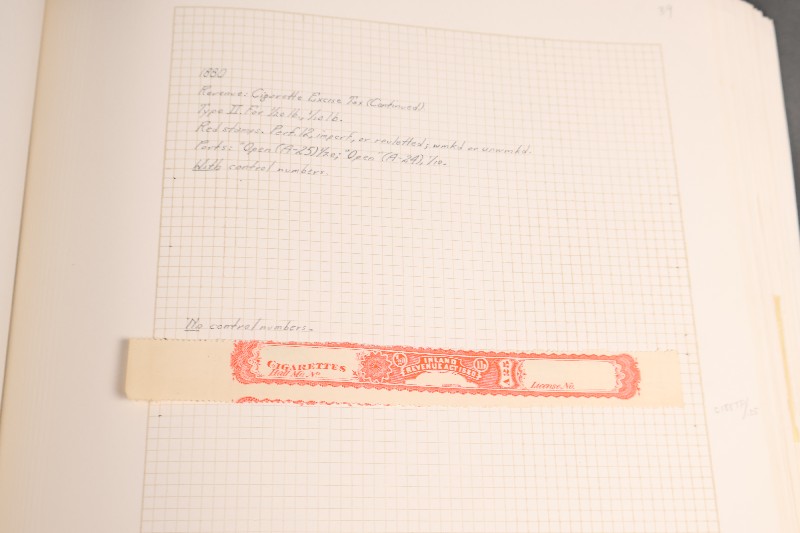 1880
Revenue: Cigarette Excise Tax (Continued)
Type II. For 1/20 lb., 1/10 lb.
Red stamps. Perf. 12, imperf, or rouletted; wmkd or unwmkd.
Ports: "Open (A-25) 1/20; "Open" (A-24), 1/10.
With control numbers.
No control numbers.
CIGARETTES
INLAND
REVENUE ACT 1880
A 25
License, No.